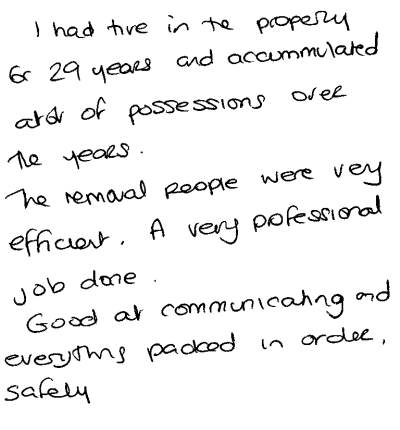 I had live in the property
for 29 years and accummulated
a lot of possessions over
the years.
The removal people were very
efficient. A very professional
job done.
Good at communicating and
everything packed in order,
safely